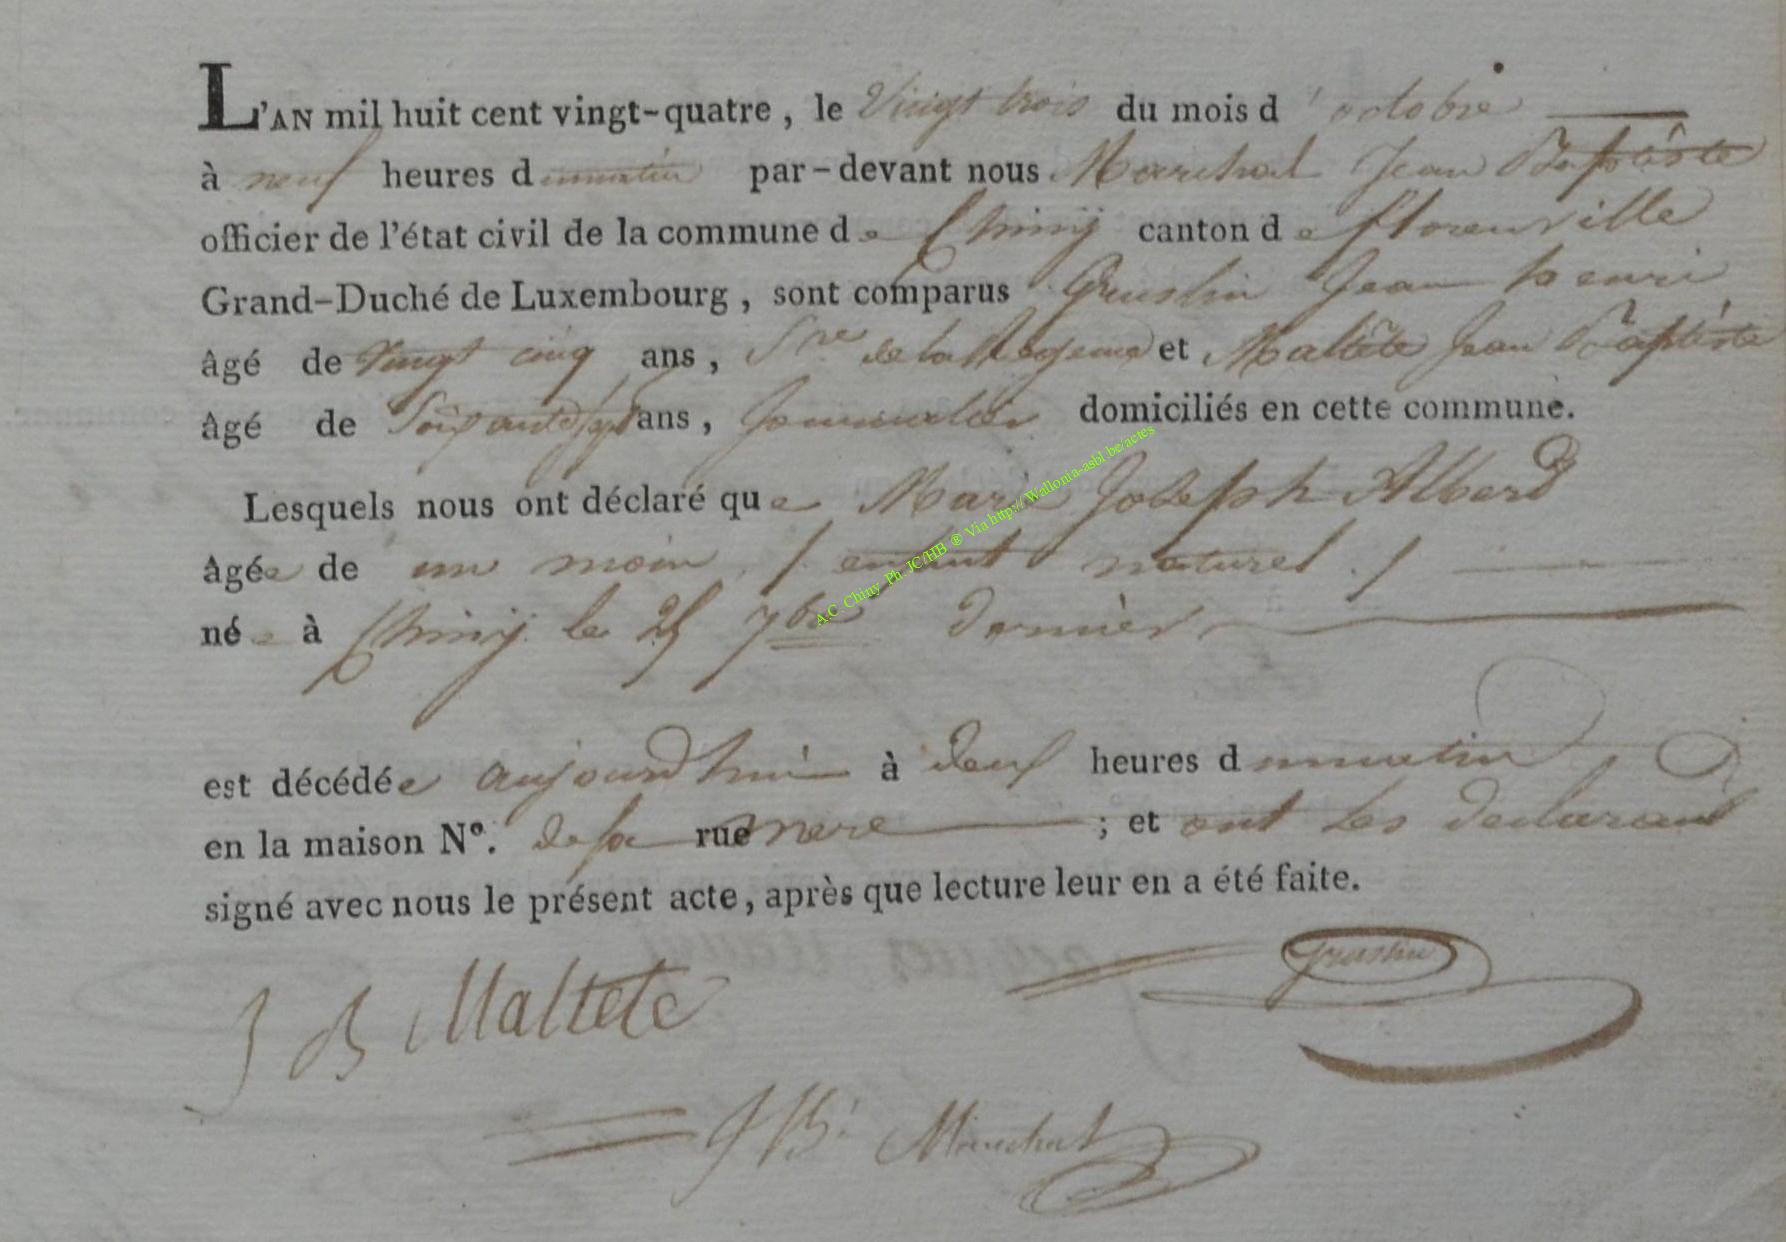 L'AN mil huit cent vingt-quatre, le Vingt trois du mois d'octobre
à neuf heures du matin par-devant nous Marechal Jean Baptiste
officier de l'état civil de la commune de Chiny canton de florenville
Grand-Duché de Luxembourg, sont comparus Gruslin Jean henri
âgé de Vingt cinq ans, et Maltête Jean Baptiste
âgé de Soixante sept ans, Journalier domiciliés en cette commune.
Lesquels nous ont déclaré que Marie Joseph Alberd
âgée de un mois / enfant naturel . /
née à Chiny le 25 7bre dernier
est décédée aujourd'hui à heures du matin
en la maison N°. de sa rue mere ; et ont les declarant
signé avec nous le présent acte, après que lecture leur en a été faite.
J B Maltete Gruslin
J B Marechal
A.C Chiny Ph. JC/HB ® Via http://Wallonia-asbl.be/actes